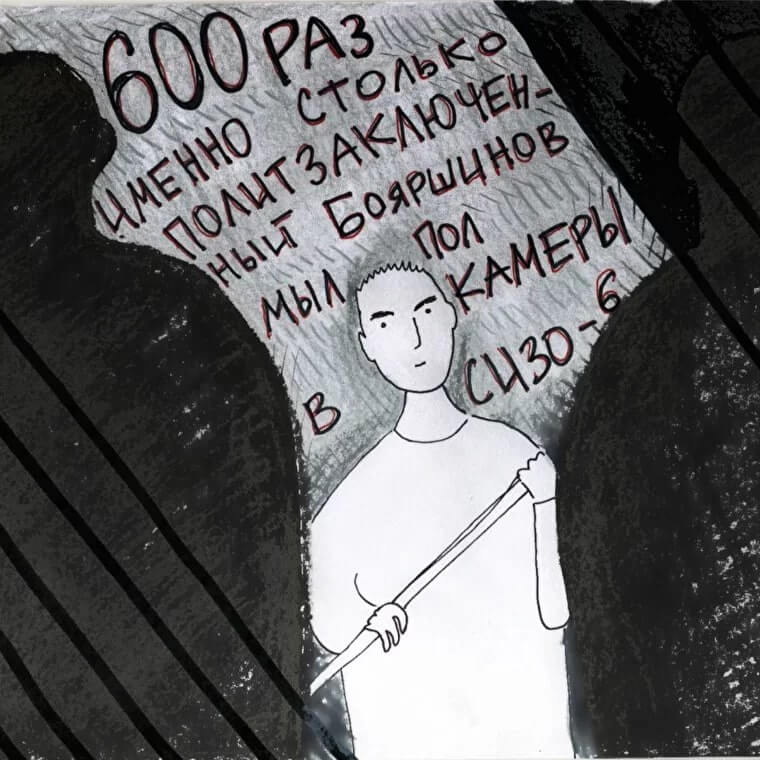 600 РАЗ
ИМЕННО СТОЛЬКО
ПОЛИТЗАКЛЮЧЕН-
НЫЙ БОЯРШИНОВ
МЫЛ ПОЛ
КАМЕРЫ
В СИЗО-6